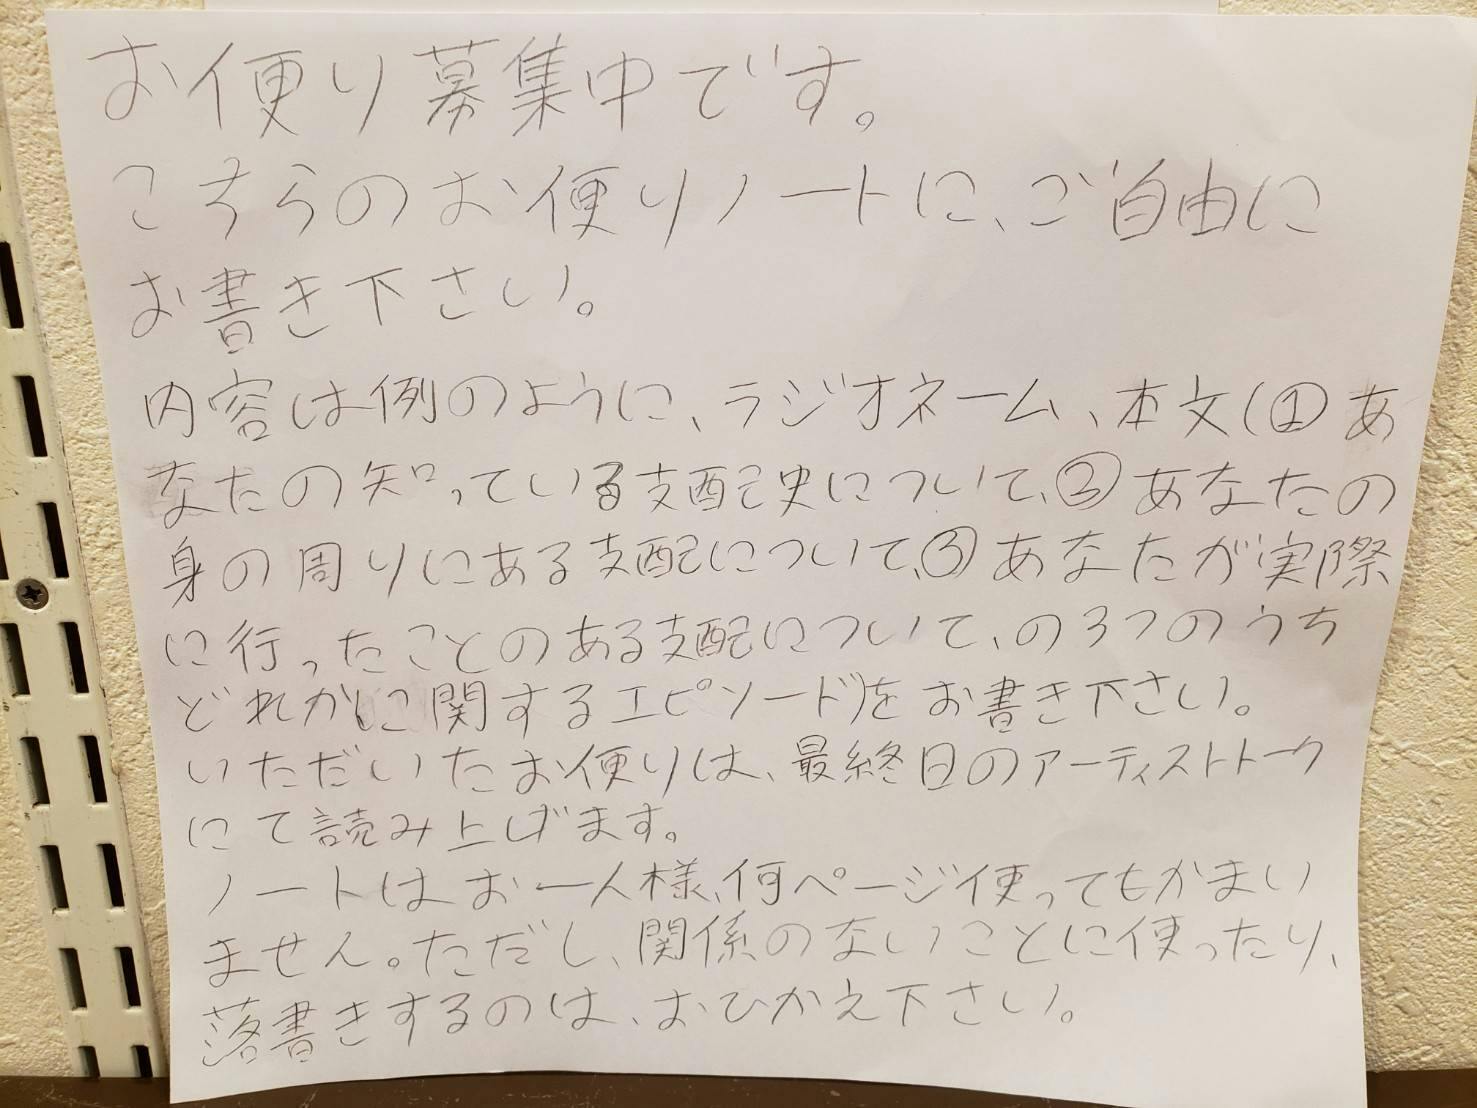 お便り募集中です。
こちらのお便りノートに、ご自由に
お書き下さい。
内容は例のように、ラジオネーム、本文(①あ
なたの知っている支配史について、②あなたの
身の周りにある支配について、③あなたが実際
に行ったことのある支配について、の3つのうち
どれかに関するエピソード)をお書き下さい。
いただいたお便りは、最終日のアーティストトーク
にて読み上げます。
ノートはお一人様、何ページ使ってもかまい
ません。ただし、関係のないことに使ったり、
落書きするのは、おひかえ下さい。